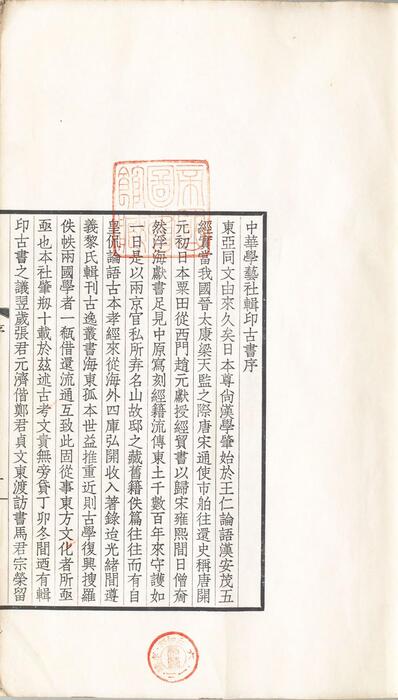 中華學藝社輯印古書序
東亞同文由來久矣日本尊尙漢學肇始於王仁論語漢安茂五
經實當我國晉太康梁天監之際唐宋通使市舶往還史稱唐開
元初日本粟田從西門趙元獻授經貿書以歸宋雍熙間日僧奝
然浮海獻書足見中原寫刻經籍流傳東土千數百年來守護如
一日是以兩京官私所弆名山故邸之藏舊籍佚篇往往而有自
皇侃論語古本孝經來從海外四庫弘開收入著錄迨光緖間遵
義黎氏輯刊古逸叢書海東孤本世益推重近則古學復興搜羅
佚帙兩國學者一瓻借還流通互致此固從事東方文化者所亟
亟也本社肇剏十載於茲述古考文責無旁貸丁卯冬間迺有輯
印古書之議翌歲張君元濟偕鄭君貞文東渡訪書馬君宗榮留
序
一